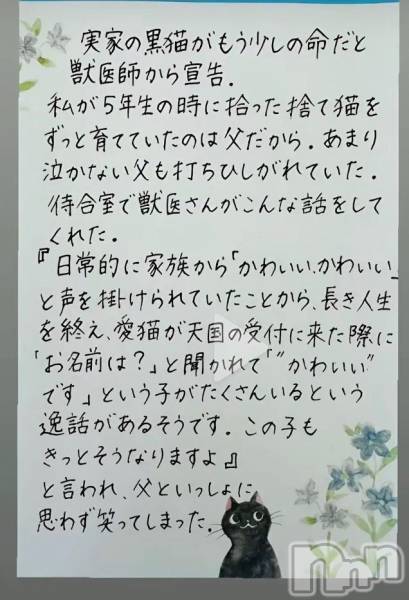 実家の黒猫がもう少しの命だと
獣医師から宣告.
私が5年生の時に拾った捨て猫を
ずっと育てていたのは父だから. あまり
泣かない父も打ちひしがれていた.
待合室で獣医さんがこんな話をして
くれた.
『日常的に家族から「かわいい、かわいい」
と声を掛けられていたことから、長き人生
を終え、愛猫が天国の受付に来た際に
「お名前は？」と聞かれて「"かわいい"
です」という子がたくさんいるという
逸話があるそうです. この子も
きっとそうなりますよ』
と言われ、父といっしょに
思わず笑ってしまった.